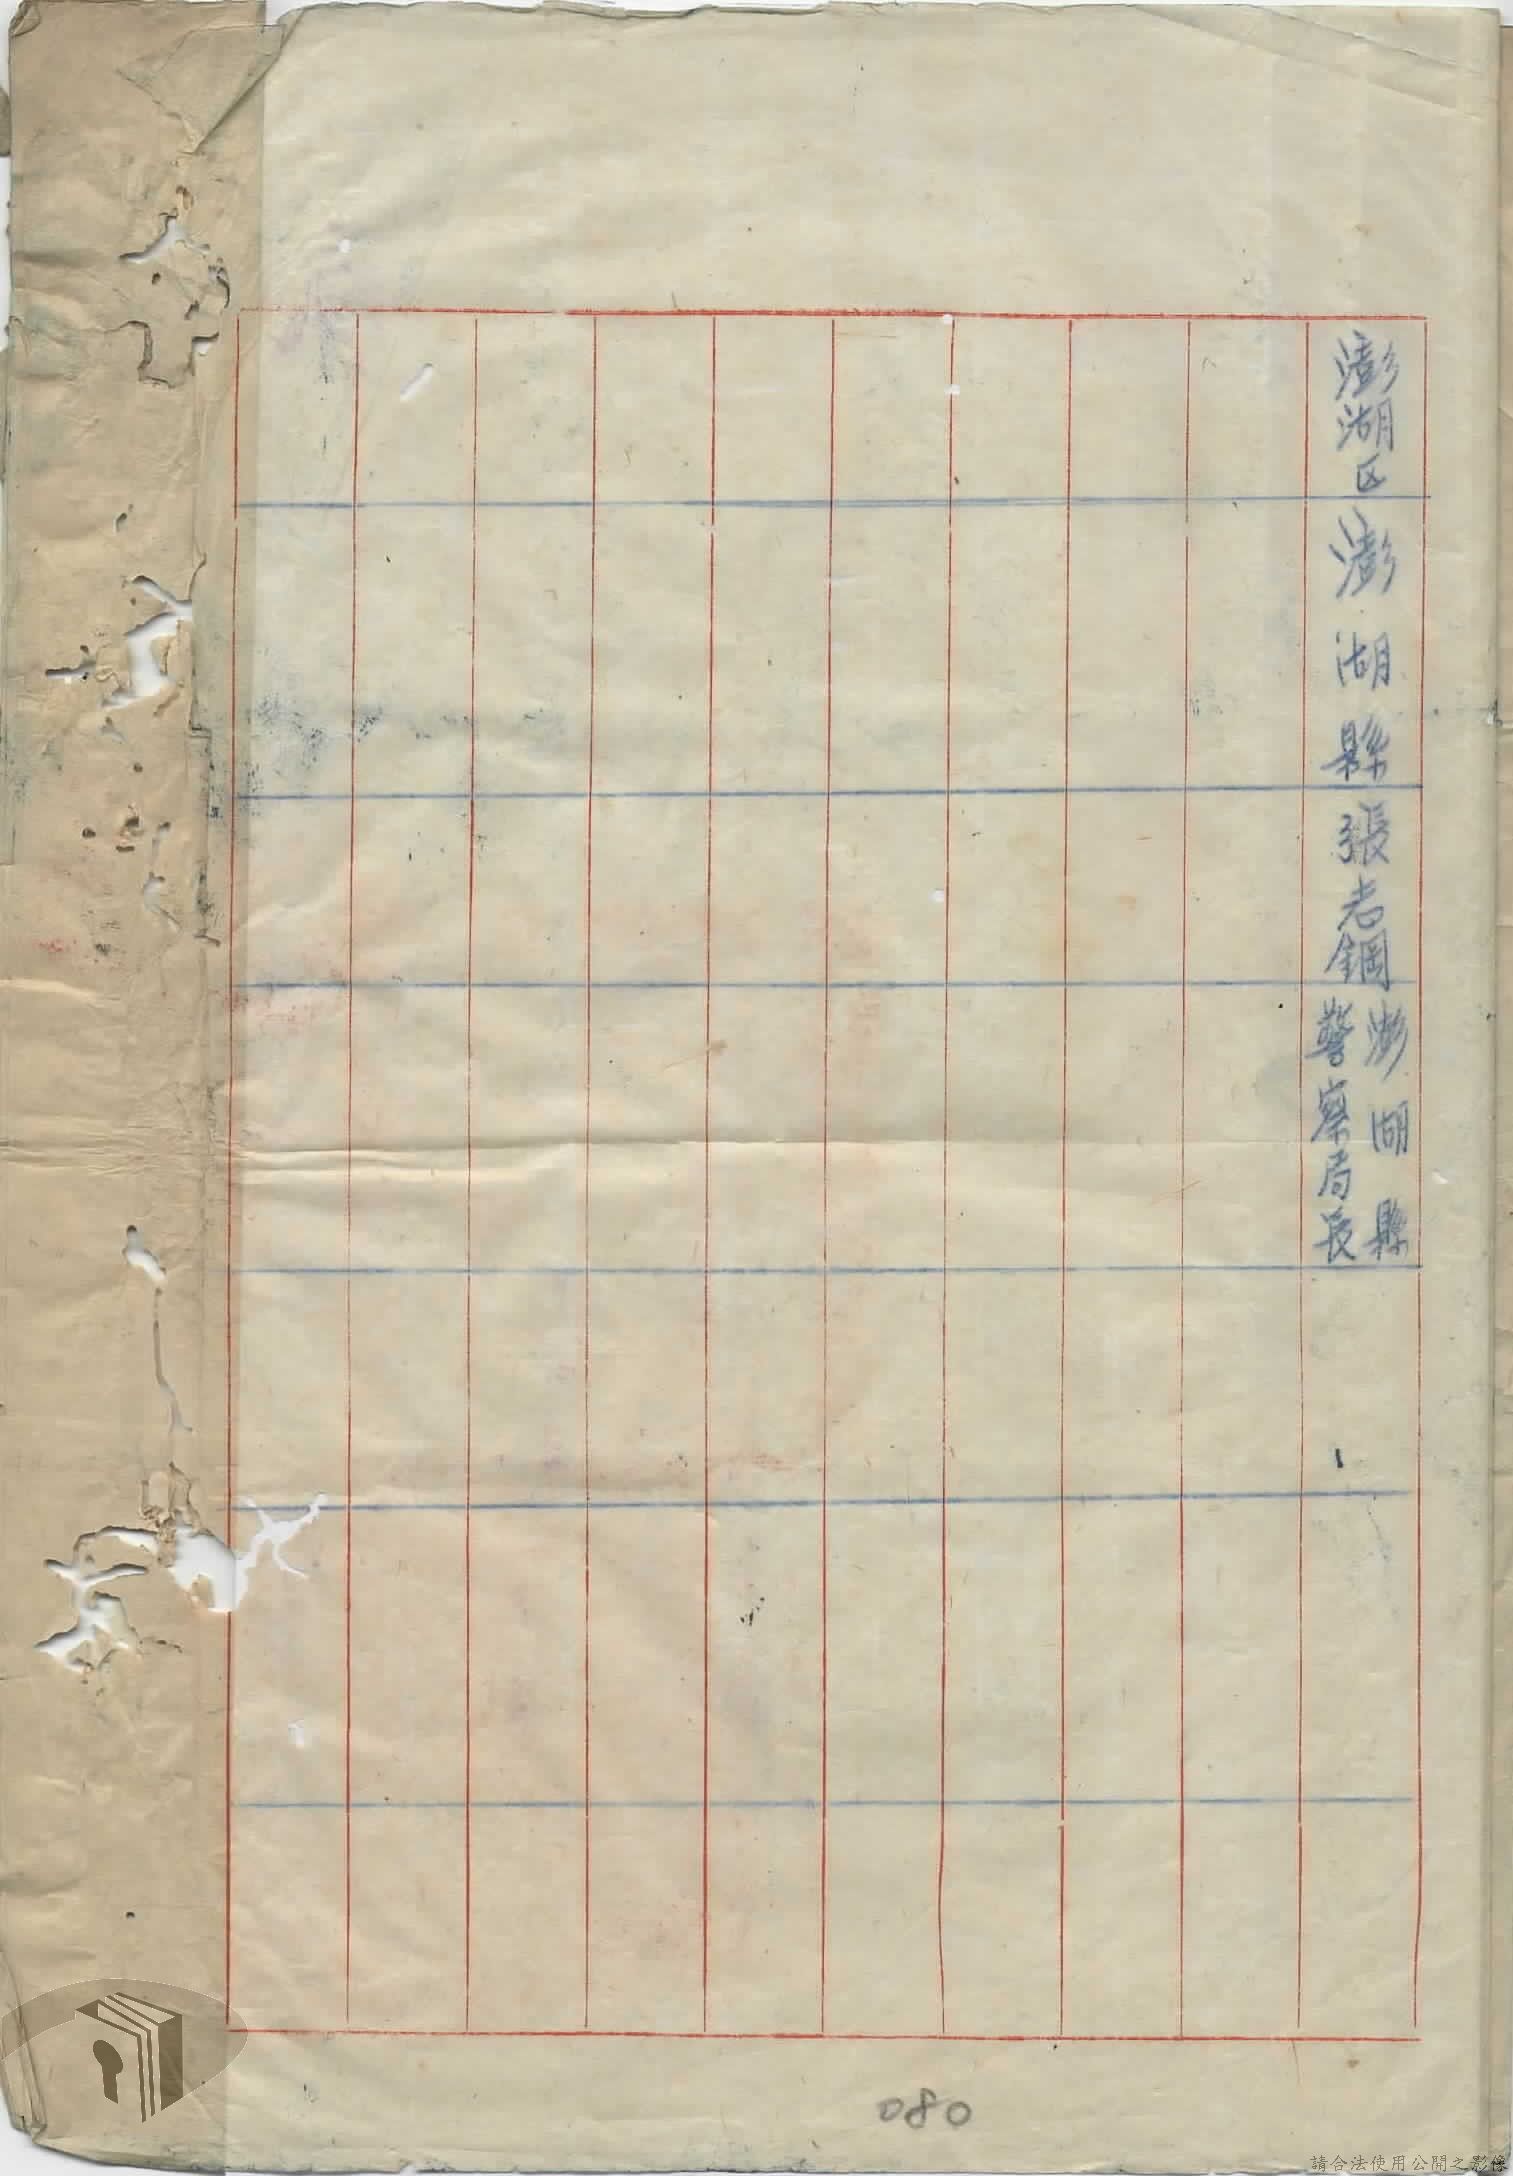 澎湖区
澎湖縣
張志鋼
澎湖縣
警察局長
080
請合法使用公開之影像